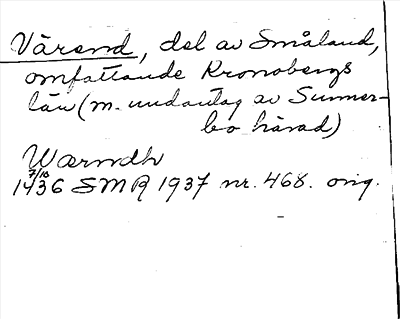 Värend, del av Småland,
omfattande Kronobergs
län (m. undantag av Sunner-
bo härad)
Wærndh
7/10
1436 SMR 1937 nr. 468. orig.